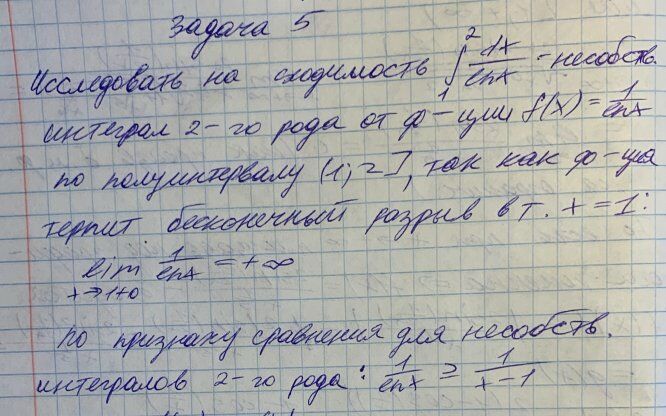 Задача 5
Исследовать на сходимость ∫₁² dx/lnx - несобств.
интеграл 2-го рода от ф-ции f(x) = 1/lnx
по полуинтервалу (1; 2], так как ф-ция
терпит бесконечный разрыв в т. x = 1:
lim 1/lnx = +∞
x→1+0
по признаку сравнения для несобств.
интегралов 2-го рода: 1/lnx ≥ 1/(x-1)